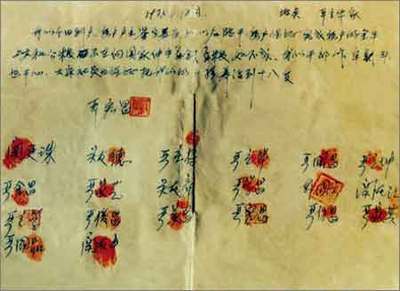 1978.12月. 地点 严立华家
我们分田到户，每户户主签字盖章，如以后能干，每户保证完成每户的全年
上交和公粮，不在向国家伸手要钱要粮，如不成，我们干部作牢刹
头也干心，大家社员也保证把我们的小孩养活到十八岁
严宏昌
关廷珠 关友德 严立符 严立华 严国昌 严立坤
严金昌 严家芝 关友章 严学昌 韩国云 关友江
严立学 严俊昌 严美昌 严宏昌 严付昌 严家其
严国品 关友申